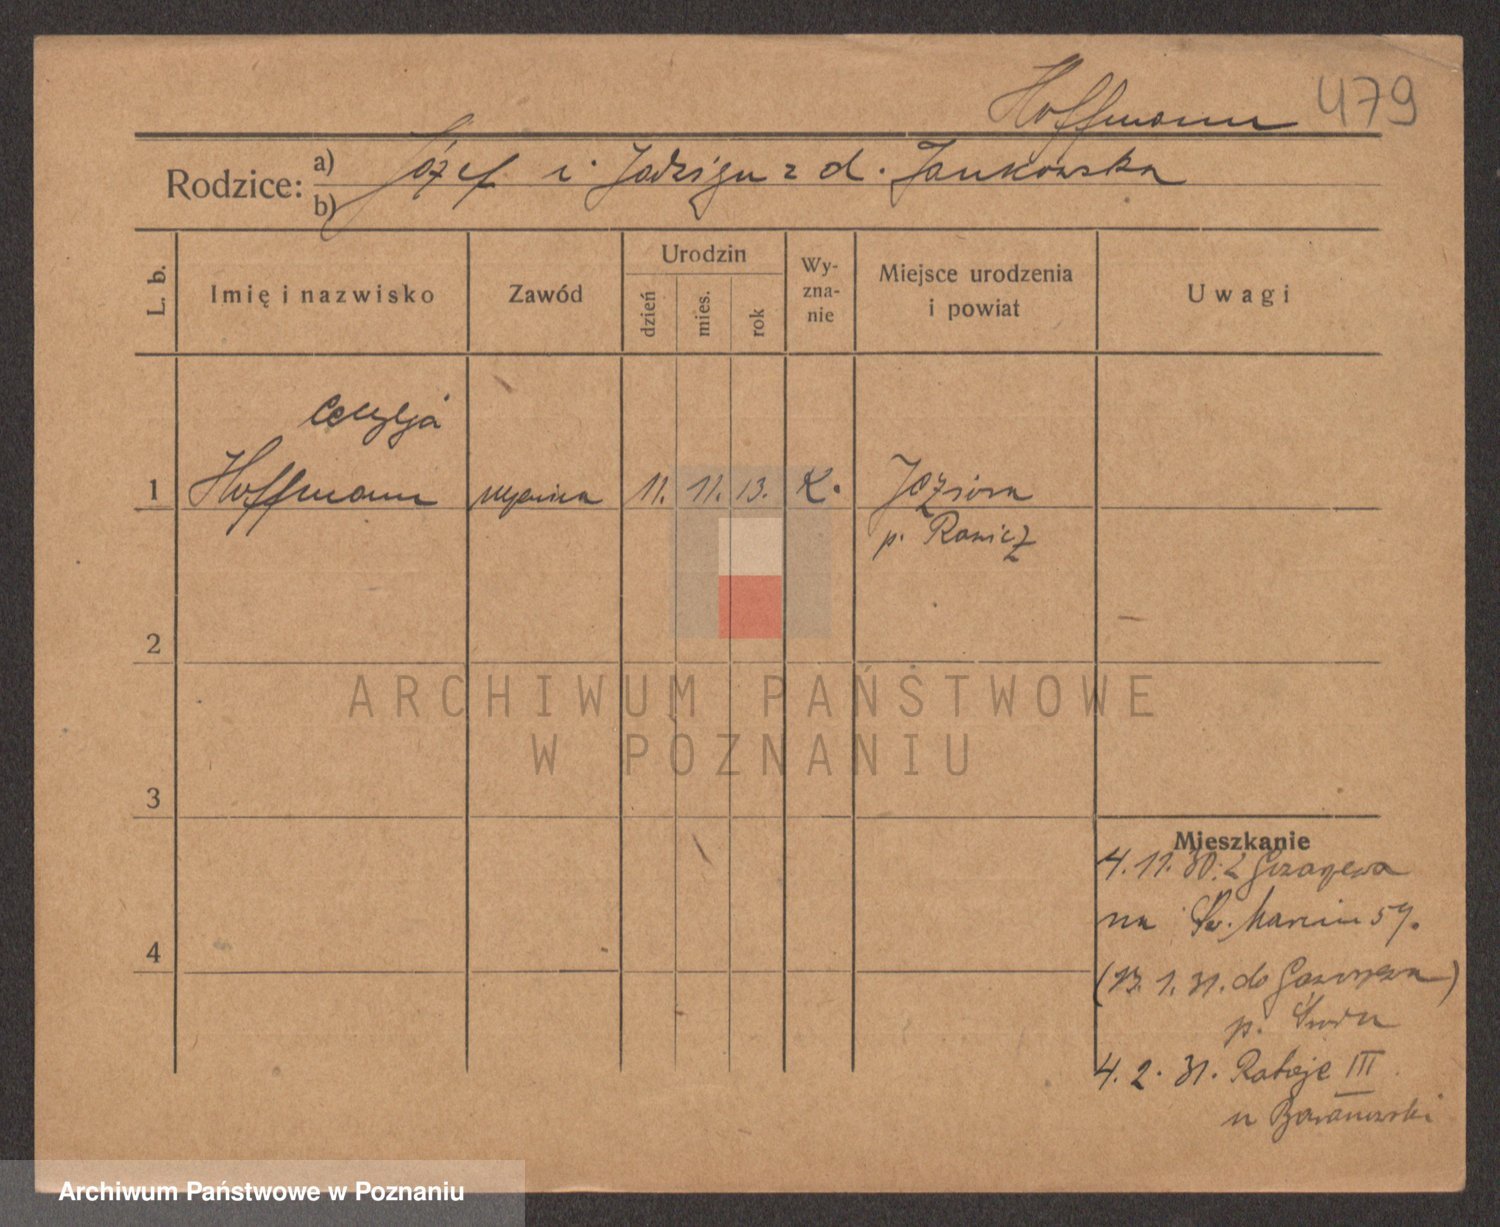 Hoffmann 479
Rodzice: a) Józef i Jadwiga z d. Jankowska
b)
L. b.
Imię i nazwisko
Zawód
Urodzin
dzień
mies.
rok
Wy-
zna-
nie
Miejsce urodzenia
i powiat
Uwagi
Cecylja
1 Hoffmann uczenica 11. 11. 13. K. Jeziora
p. Rawicz
2
3
4
Mieszkanie
4. 11. 30. z
na Św. Marcin 57.
(13. 1. 31. do
p. Środa
4. 2. 31. Rataje III
u Baranowski
ARCHIWUM PAŃSTWOWE
W POZNANIU
Archiwum Państwowe w Poznaniu